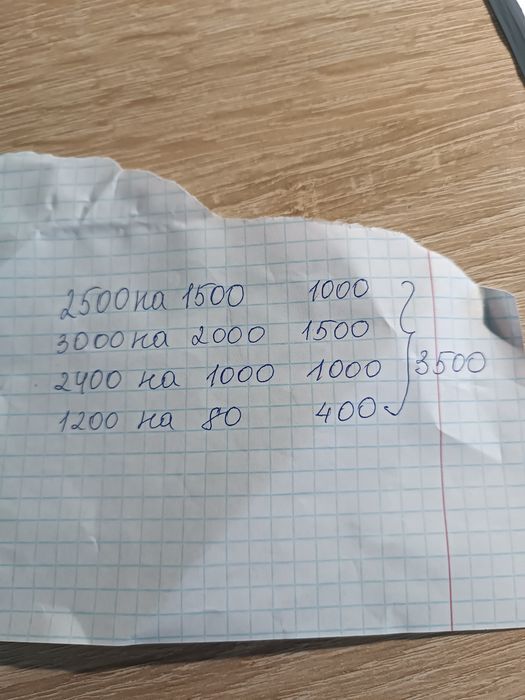 2500 на 1500 1000
3000 на 2000 1500
2400 на 1000 1000 3500
1200 на 80 400